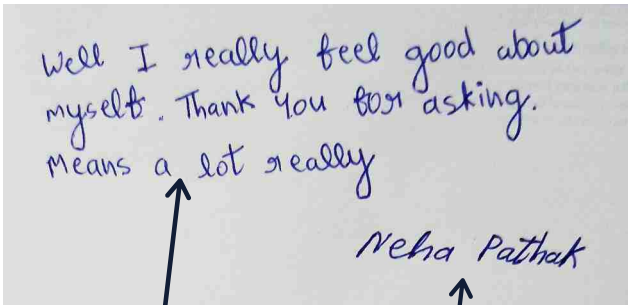 Well I really feel good about
myself. Thank you for asking.
Means a lot really
Neha Pathak